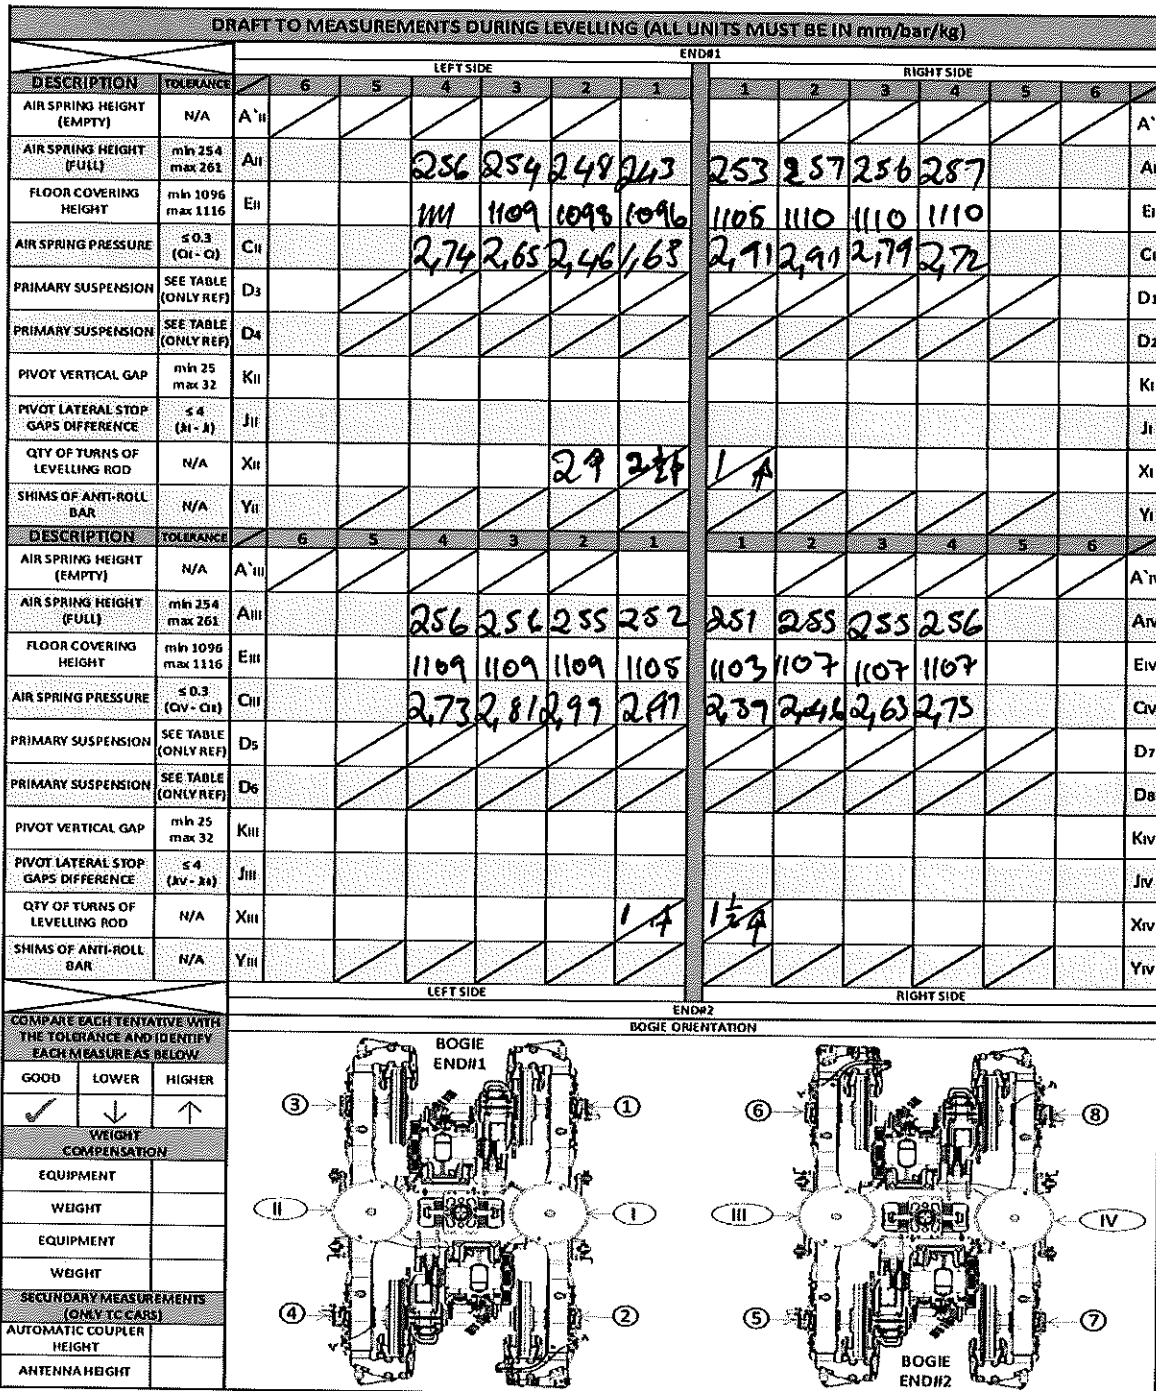 DRAFT TO MEASUREMENTS DURING LEVELLING (ALL UNITS MUST BE IN mm/bar/kg)
END#1
LEFT SIDE RIGHT SIDE
DESCRIPTION TOLERANCE 6 5 4 3 2 1 1 2 3 4 5 6
AIR SPRING HEIGHT (EMPTY) N/A A`II A`
AIR SPRING HEIGHT (FULL) min 254 max 261 AII 256 254 248 243 253 257 256 257 AI
FLOOR COVERING HEIGHT min 1096 max 1116 EII 1111 1109 1098 1096 1105 1110 1110 1110 EI
AIR SPRING PRESSURE ≤ 0.3 (CII - CI) CII 2,74 2,65 2,46 1,63 2,91 2,91 2,79 2,72 CI
PRIMARY SUSPENSION SEE TABLE (ONLY REF) D3 D1
PRIMARY SUSPENSION SEE TABLE (ONLY REF) D4 D2
PIVOT VERTICAL GAP min 25 max 32 KII KI
PIVOT LATERAL STOP GAPS DIFFERENCE ≤ 4 (JII - JI) JII JI
QTY OF TURNS OF LEVELLING ROD N/A XII 2↑ 2 1/2↑ 1 ↑ XI
SHIMS OF ANTI-ROLL BAR N/A YII YI
DESCRIPTION TOLERANCE 6 5 4 3 2 1 1 2 3 4 5 6
AIR SPRING HEIGHT (EMPTY) N/A A`III A`IV
AIR SPRING HEIGHT (FULL) min 254 max 261 AIII 256 256 255 252 251 255 255 256 AIV
FLOOR COVERING HEIGHT min 1096 max 1116 EIII 1109 1109 1109 1105 1103 1107 1107 1107 EIV
AIR SPRING PRESSURE ≤ 0.3 (CIV - CIII) CIII 2,73 2,81 2,99 2,39 2,46 2,63 2,75 CIV
PRIMARY SUSPENSION SEE TABLE (ONLY REF) D5 D7
PRIMARY SUSPENSION SEE TABLE (ONLY REF) D6 D8
PIVOT VERTICAL GAP min 25 max 32 KIII KIV
PIVOT LATERAL STOP GAPS DIFFERENCE ≤ 4 (JIV - JIII) JIII JIV
QTY OF TURNS OF LEVELLING ROD N/A XIII 1 ↑ 1 1/2 ↑ XIV
SHIMS OF ANTI-ROLL BAR N/A YIII YIV
LEFT SIDE RIGHT SIDE
END#2
COMPARE EACH TENTATIVE WITH THE TOLERANCE AND IDENTIFY EACH MEASURE AS BELOW
GOOD LOWER HIGHER
✓ ↓ ↑
WEIGHT COMPENSATION
EQUIPMENT
WEIGHT
EQUIPMENT
WEIGHT
SECUNDARY MEASUREMENTS (ONLY TC CARS)
AUTOMATIC COUPLER HEIGHT
ANTENNA HEIGHT
BOGIE ORIENTATION
BOGIE END#1
3 1 6 8
II I III IV
4 2 5 7
BOGIE END#2